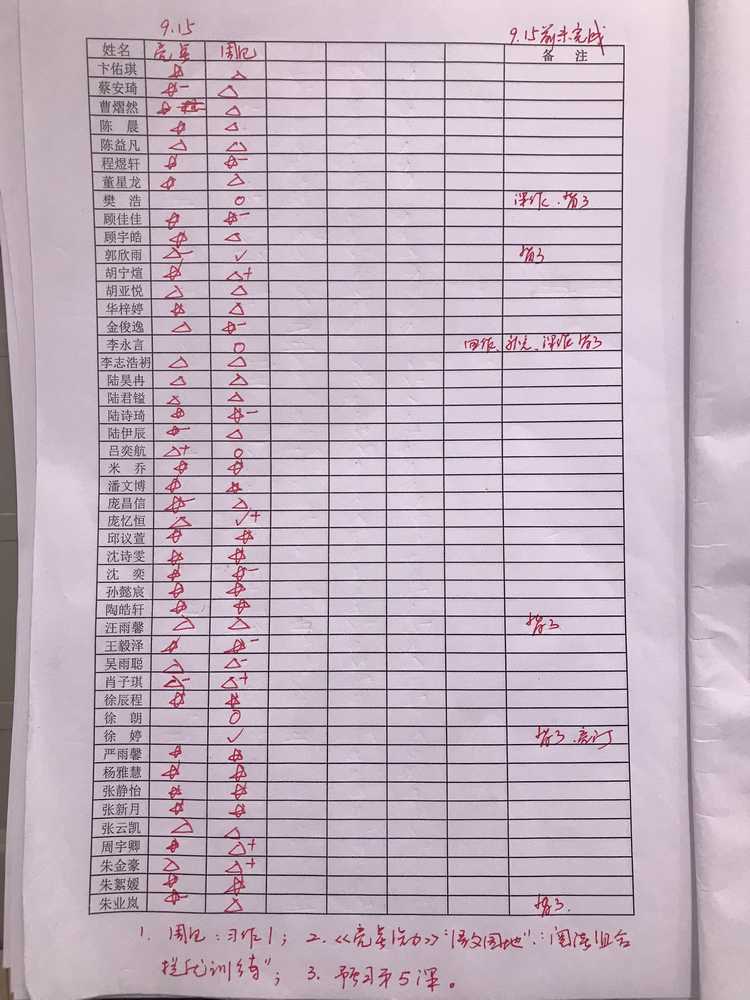 9.15 9.15前未完成
姓名 亮点 周记 备 注
卞佑琪 ☆ △
蔡安琦 ☆- △
曹熠然 ☆ △
陈 晨 ☆ △
陈益凡 △ △
程煜轩 ☆ ☆-
董星龙 ☆ △
樊 浩 ○
顾佳佳 ☆ ☆-
顾宇皓 ☆ △
郭欣雨 △- ✓
胡宁煊 ☆ △+
胡亚悦 △ △
华梓婷 ☆ △
金俊逸 △ ☆-
李永言 ○
李志浩礽 △ △
陆昊冉 △ △
陆君镒 △ △
陆诗琦 ☆ ☆-
陆伊辰 ☆- △
吕奕航 △+ ○
米 乔 ☆ ☆
潘文博 ☆ ☆
庞昌信 ☆- △
庞忆恒 △ ✓+
邱议萱 ☆ ☆
沈诗雯 ☆ ☆
沈 奕 ☆ ☆-
孙懿宸 ☆ ☆
陶皓轩 ☆ ☆
汪雨馨 △ △
王毅泽 ☆ ☆-
吴雨聪 △ △-
肖子琪 △- △+
徐辰程 ☆ ☆
徐 朗 ○
徐 婷 ✓
严雨馨 ☆ ☆
杨雅慧 ☆ ☆
张静怡 ☆ ☆
张新月 ☆ ☆
张云凯 △ △
周宇卿 ☆ △+
朱金豪 △ △+
朱絮媛 ☆ ☆
朱业岚 ☆- △
1. 周记:习作1; 2.《亮点给力》"语文园地"、"阅读组合
拦优训练"; 3. 预习第5课。